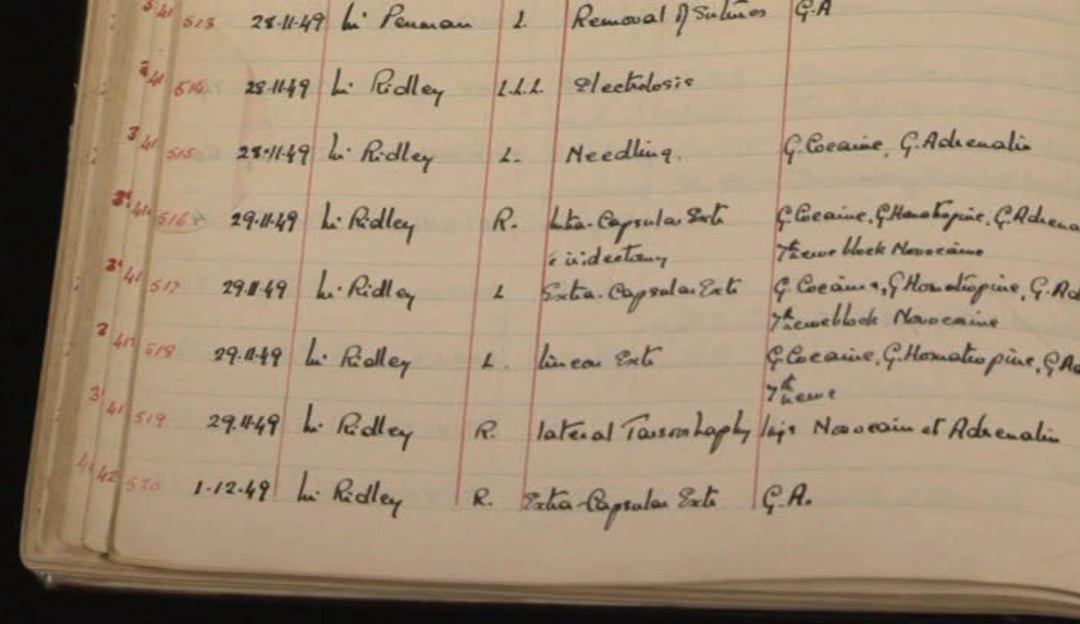 3 41 513 28-11-49 Mr Penman L. Removal of Sutures G.A
41 514 28-11-49 Mr Ridley L.L.L. Electrolosis
3 41 515 28-11-49 Mr Ridley L. Needling. G.Cocaine, G.Adrenalin
3 41 516 29-11-49 Mr Ridley R. Intra-Capsular Extr G.Cocaine, G.Homatropine, G.Adrena
c iridectomy 7th nerve block Novocaine
3 41 517 29.11.49 Mr Ridley L Extra-Capsular Extr G.Cocaine, G.Homatropine, G.Ad
7th nerve block Novocaine
3 41 518 29.11.49 Mr Ridley L. linear Extr G.Cocaine, G.Homatropine, G.Ad
7th nerve
3 41 519 29.11.49 Mr Ridley R. lateral Tarsorrhaphy Inj. Novocain et Adrenalin
42 520 1-12-49 Mr Ridley R. Extra-Capsular Extr G.A.